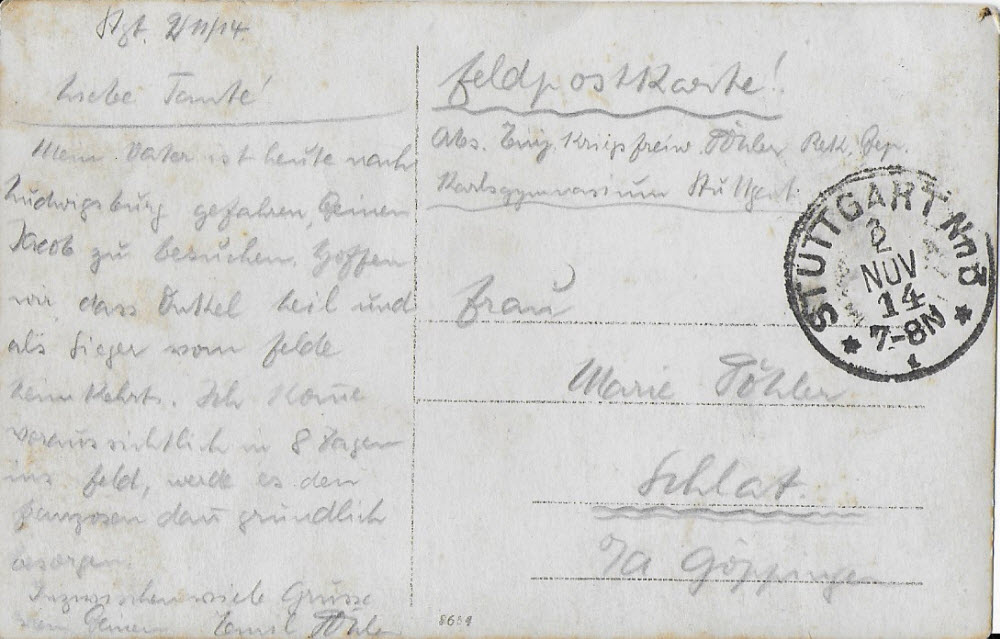 Stgt. 2/11/14
Liebe Tante!
Mein Vater ist heute nach
Ludwigsburg gefahren, Deinen
Jacob zu besuchen. Hoffen
wir, dass Onkel heil und
als Sieger vom Felde
heimkehrt. Ich komme
voraussichtlich in 8 Tagen
ins Feld, werde es den
Franzosen dann gründlich
besorgen.
Inzwischen viele Grüsse
Emil Pöhler
Feldpostkarte!
Abs. Kriegsfreiw. Pöhler Rek. Dep.
Karlsgymnasium Stuttgart.
Frau
Marie Pöhler
Schlat.
o/a Göppingen
STUTTGART No 8
2
NOV
14
7-8N
8664